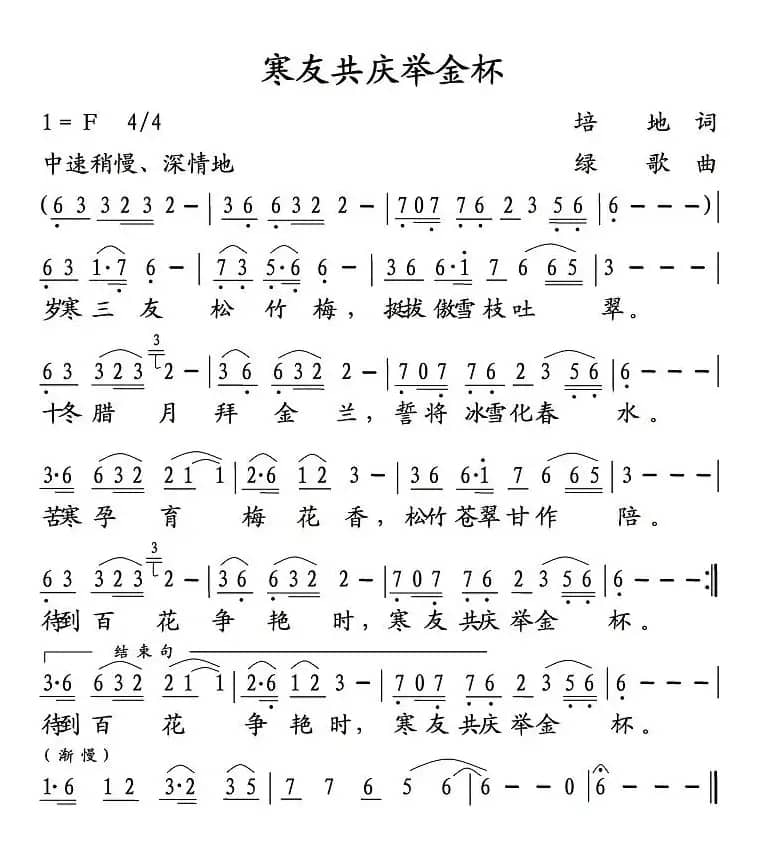 寒友共庆举金杯
1 = F 4/4 培 地 词
中速稍慢、深情地 绿 歌 曲
(6 3 3 2 3 2 – | 3 6 6 3 2 2 – | 7 0 7 7 6 2 3 5 6 | 6 – – – )|
6 3 1·7 6 – | 7 3 5·6 6 – | 3 6 6·1 7 6 6 5 | 3 – – – |
岁寒 三 友 松 竹 梅， 挺拔 傲雪 枝 吐 翠。
3
6 3 3 2 3 2 – | 3 6 6 3 2 2 – | 7 0 7 7 6 2 3 5 6 | 6 – – – |
十冬 腊 月 拜 金 兰， 誓 将 冰雪 化 春 水。
3·6 6 3 2 2 1 1 | 2·6 1 2 3 – | 3 6 6·1 7 6 6 5 | 3 – – – |
苦寒 孕 育 梅 花 香， 松竹 苍 翠 甘 作 陪。
3
6 3 3 2 3 2 – | 3 6 6 3 2 2 – | 7 0 7 7 6 2 3 5 6 | 6 – – – :||
待到 百 花 争 艳 时， 寒 友 共庆 举 金 杯。
结 束 句
3·6 6 3 2 2 1 1 | 2·6 1 2 3 – | 7 0 7 7 6 2 3 5 6 | 6 – – – |
待到 百 花 争 艳 时， 寒 友 共庆 举 金 杯。
(渐 慢)
1·6 1 2 3·2 3 5 | 7 7 6 5 6 | 6 – – 0 | 6 – – – ||